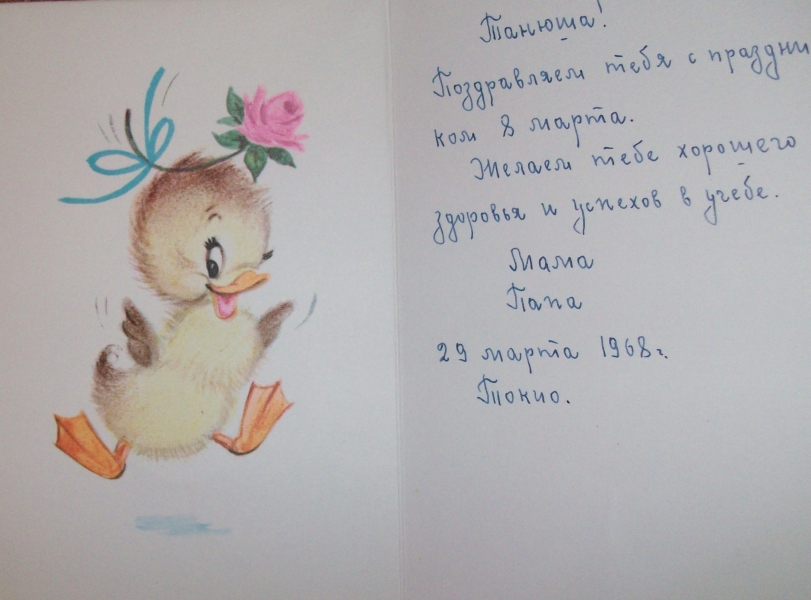 Танюша!
Поздравляем тебя с праздни
ком 8 марта.
Желаем тебе хорошего
здоровья и успехов в учебе.
Мама
Папа
29 марта 1968г.
Токио.